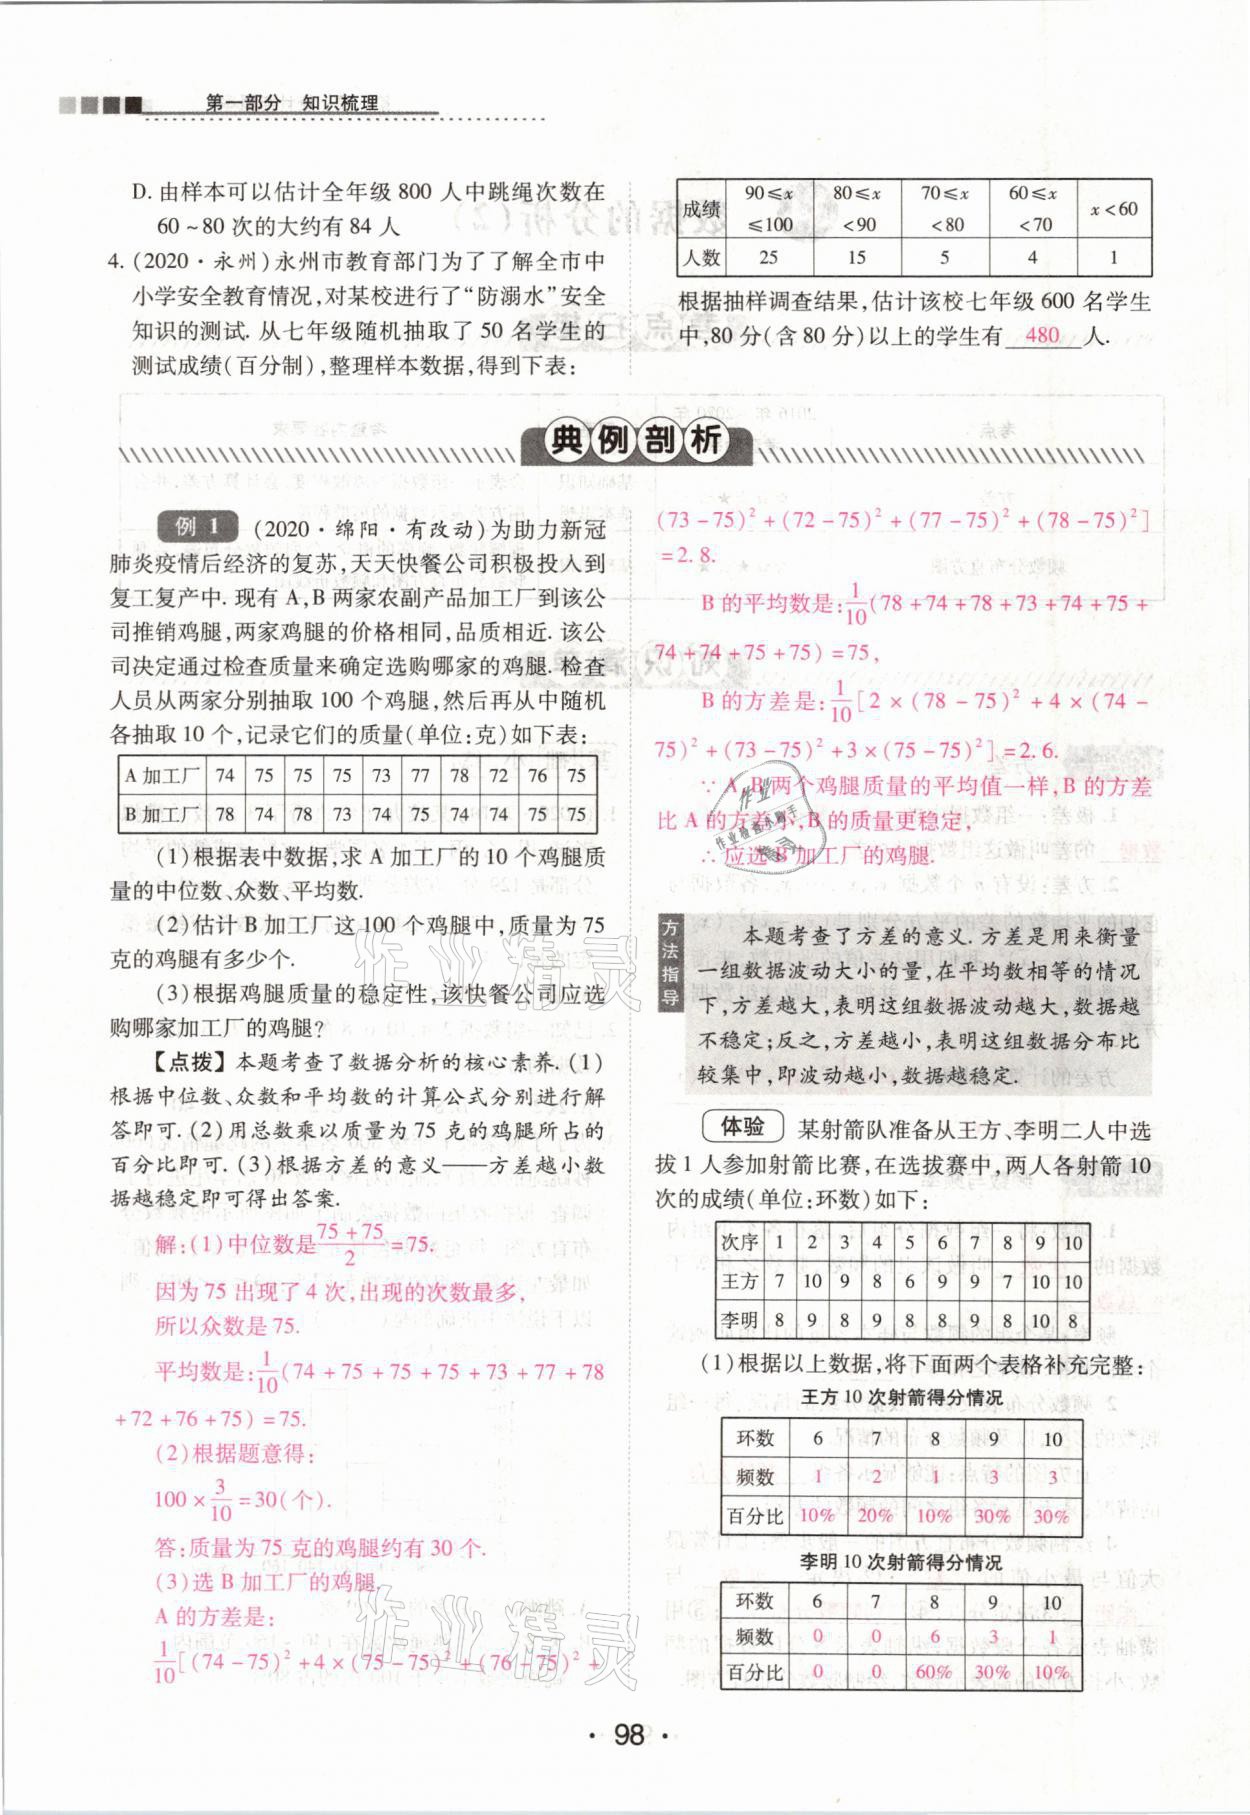 第一部分 知识梳理
D. 由样本可以估计全年级 800 人中跳绳次数在
60~80 次的大约有 84 人
4. (2020·永州)永州市教育部门为了了解全市中
小学安全教育情况,对某校进行了“防溺水”安全
知识的测试. 从七年级随机抽取了 50 名学生的
测试成绩(百分制),整理样本数据,得到下表:
成绩 90≤x≤100 80≤x<90 70≤x<80 60≤x<70 x<60
人数 25 15 5 4 1
根据抽样调查结果,估计该校七年级 600 名学生
中,80 分(含 80 分)以上的学生有 480 人.
典例剖析
例 1 (2020·绵阳·有改动)为助力新冠
肺炎疫情后经济的复苏,天天快餐公司积极投入到
复工复产中. 现有 A,B 两家农副产品加工厂到该公
司推销鸡腿,两家鸡腿的价格相同,品质相近. 该公
司决定通过检查质量来确定选购哪家的鸡腿. 检查
人员从两家分别抽取 100 个鸡腿,然后再从中随机
各抽取 10 个,记录它们的质量(单位:克)如下表:
A 加工厂 74 75 75 75 73 77 78 72 76 75
B 加工厂 78 74 78 73 74 75 74 74 75 75
(1)根据表中数据,求 A 加工厂的 10 个鸡腿质
量的中位数、众数、平均数.
(2)估计 B 加工厂这 100 个鸡腿中,质量为 75
克的鸡腿有多少个.
(3)根据鸡腿质量的稳定性,该快餐公司应选
购哪家加工厂的鸡腿?
【点拨】本题考查了数据分析的核心素养. (1)
根据中位数、众数和平均数的计算公式分别进行解
答即可. (2)用总数乘以质量为 75 克的鸡腿所占的
百分比即可. (3)根据方差的意义——方差越小数
据越稳定即可得出答案.
解:(1)中位数是(75+75)/2=75.
因为 75 出现了 4 次,出现的次数最多,
所以众数是 75.
平均数是:1/10(74+75+75+75+73+77+78
+72+76+75)=75.
(2)根据题意得:
100×3/10=30(个).
答:质量为 75 克的鸡腿约有 30 个.
(3)选 B 加工厂的鸡腿.
A 的方差是:
1/10[(74-75)²+4×(75-75)²+(76-75)²+
(73-75)²+(72-75)²+(77-75)²+(78-75)²]
=2.8.
B 的平均数是:1/10(78+74+78+73+74+75+
74+74+75+75)=75,
B 的方差是:1/10[2×(78-75)²+4×(74-
75)²+(73-75)²+3×(75-75)²]=2.6.
∵A,B 两个鸡腿质量的平均值一样,B 的方差
比 A 的方差小,B 的质量更稳定,
∴应选 B 加工厂的鸡腿.
方法指导
本题考查了方差的意义. 方差是用来衡量
一组数据波动大小的量,在平均数相等的情况
下,方差越大,表明这组数据波动越大,数据越
不稳定;反之,方差越小,表明这组数据分布比
较集中,即波动越小,数据越稳定.
体验 某射箭队准备从王方、李明二人中选
拔 1 人参加射箭比赛,在选拔赛中,两人各射箭 10
次的成绩(单位:环数)如下:
次序 1 2 3 4 5 6 7 8 9 10
王方 7 10 9 8 6 9 9 7 10 10
李明 8 9 8 9 8 8 9 8 10 8
(1)根据以上数据,将下面两个表格补充完整:
王方 10 次射箭得分情况
环数 6 7 8 9 10
频数 1 2 1 3 3
百分比 10% 20% 10% 30% 30%
李明 10 次射箭得分情况
环数 6 7 8 9 10
频数 0 0 6 3 1
百分比 0 0 60% 30% 10%
·98·
作业精灵
作业精灵